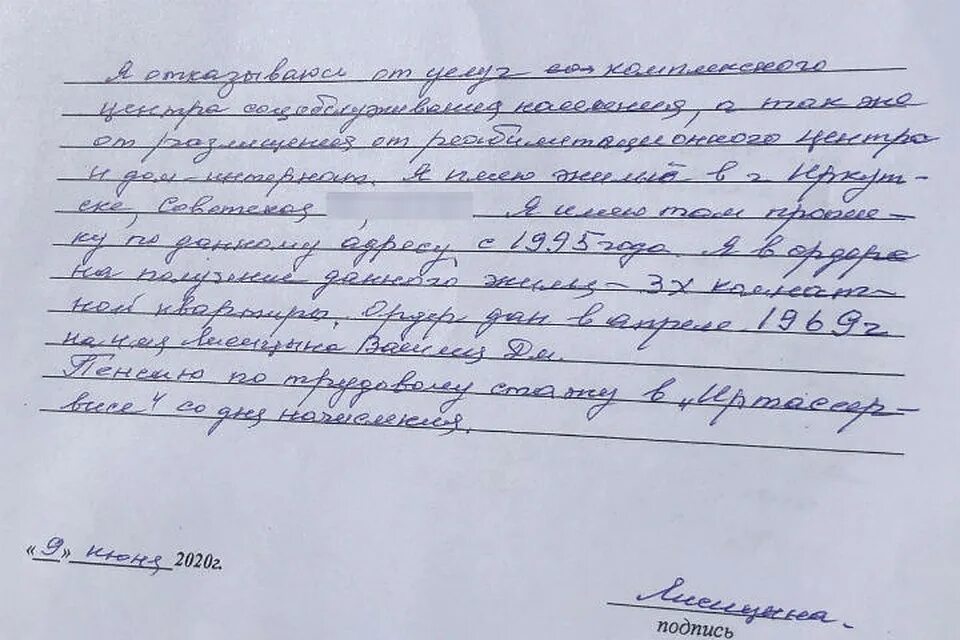 Я отказываюсь от услуг комплекского
центра соцобслуживания населения, а так же
от размещения от реабилитационного центра
и дом-интернат. Я имею жильё в г. Иркут-
ске, Советская Я имею там пропис-
ку по данному адресу с 1995 года. Я в ордере
на получение данного жилья - 3х комнат-
ной квартиры. Ордер дан в апреле 1969 г
на имя Лисицына Васи Дм.
Пенсию по трудовому стажу в „Иртассер-
висе" со дня начисления.
«9» июня 2020г.
Лисицына.
подпись